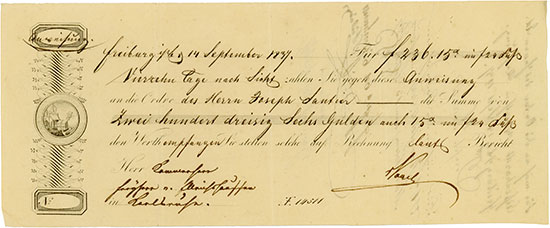 Anweisung
Freiburg i/B d 14 September 1837. Für f 236.15 x im f 24 Fuß
Vierzehn Tage nach Sicht zahlen Sie gegen diese Anweisung
an die Ordre des Herrn Joseph Sautier die Summe von
Zwei hundert dreisig Sechs Gulden auch 15 x im f 24 Fuß
den Werth empfangen Sie stellen solche auf Rechnung laut Bericht
Herr
in Carlsruhe.